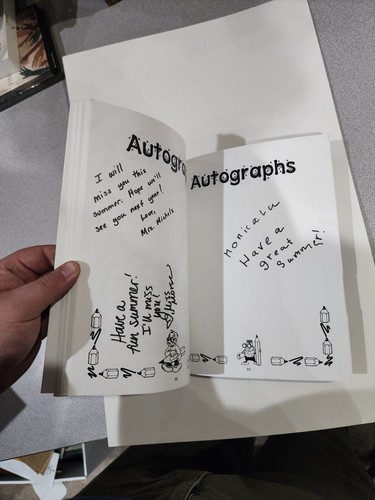 Autogra
I will
miss you this
summer. Hope we'll
see you next year!
Love,
Mrs. Nichols
Have a
fun summer!
I'll miss
you!
Miss
Autographs
Monica Lu
Have a
great
summer!